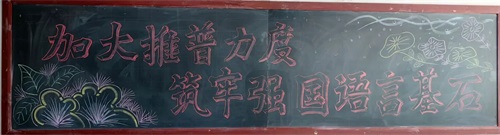 加大推普力度
筑牢强国语言基石